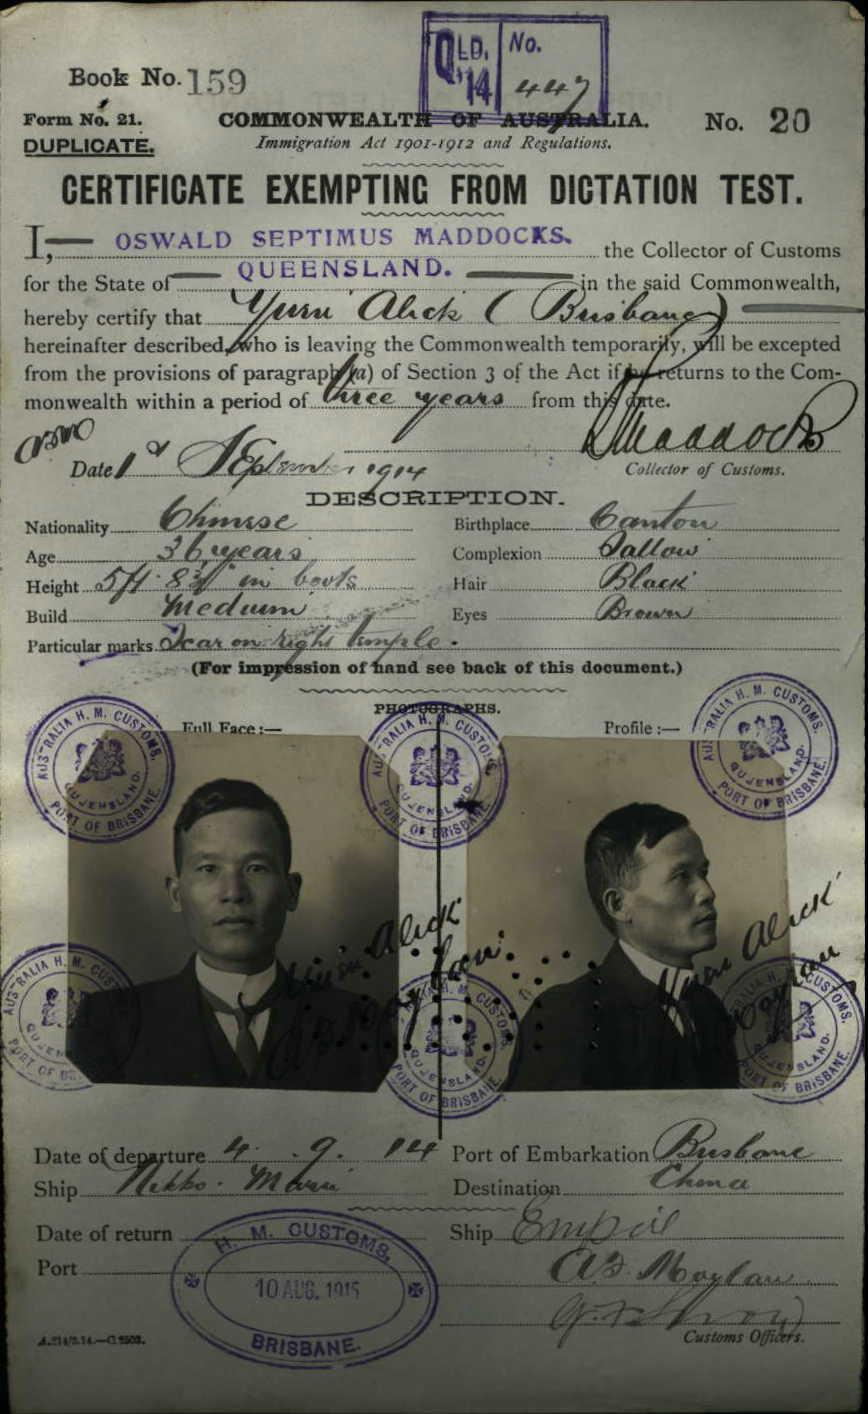 Book No. 159
QLD.
'14
No.
447
Form No. 21.
DUPLICATE.
COMMONWEALTH OF AUSTRALIA.
No. 20
Immigration Act 1901-1912 and Regulations.
CERTIFICATE EXEMPTING FROM DICTATION TEST.
I, OSWALD SEPTIMUS MADDOCKS. the Collector of Customs
for the State of QUEENSLAND. in the said Commonwealth,
hereby certify that Yuen Alick (Brisbane)
hereinafter described, who is leaving the Commonwealth temporarily, will be excepted
from the provisions of paragraph (a) of Section 3 of the Act if he returns to the Com-
monwealth within a period of three years from this date.
OSMaddocks
Date 1st September 1914
Collector of Customs.
DESCRIPTION.
Nationality Chinese
Birthplace Canton
Age 36 years
Complexion Sallow
Height 5ft. in boots
Hair Black
Build Medium
Eyes Brown
Particular marks Scar on right temple.
(For impression of hand see back of this document.)
PHOTOGRAPHS.
Full Face :—
Profile :—
AUSTRALIA H. M. CUSTOMS.
QUEENSLAND.
PORT OF BRISBANE.
AUSTRALIA H. M. CUSTOMS.
QUEENSLAND.
PORT OF BRISBANE.
AUSTRALIA H. M. CUSTOMS.
QUEENSLAND.
PORT OF BRISBANE.
Yuen Alick
Yuen Alick
Moylan
AUSTRALIA H. M. CUSTOMS.
PORT OF BRISBANE.
H. M. CUSTOMS.
QUEENSLAND.
PORT OF BRISBANE.
CUSTOMS.
QUEENSLAND.
PORT OF BRISBANE.
Date of departure 4. 9. 14
Port of Embarkation Brisbane
Ship Nikko Maru
Destination China
Date of return
Ship Empire
Port
H. M. CUSTOMS.
10 AUG. 1915
BRISBANE.
Moylan
Customs Officers.